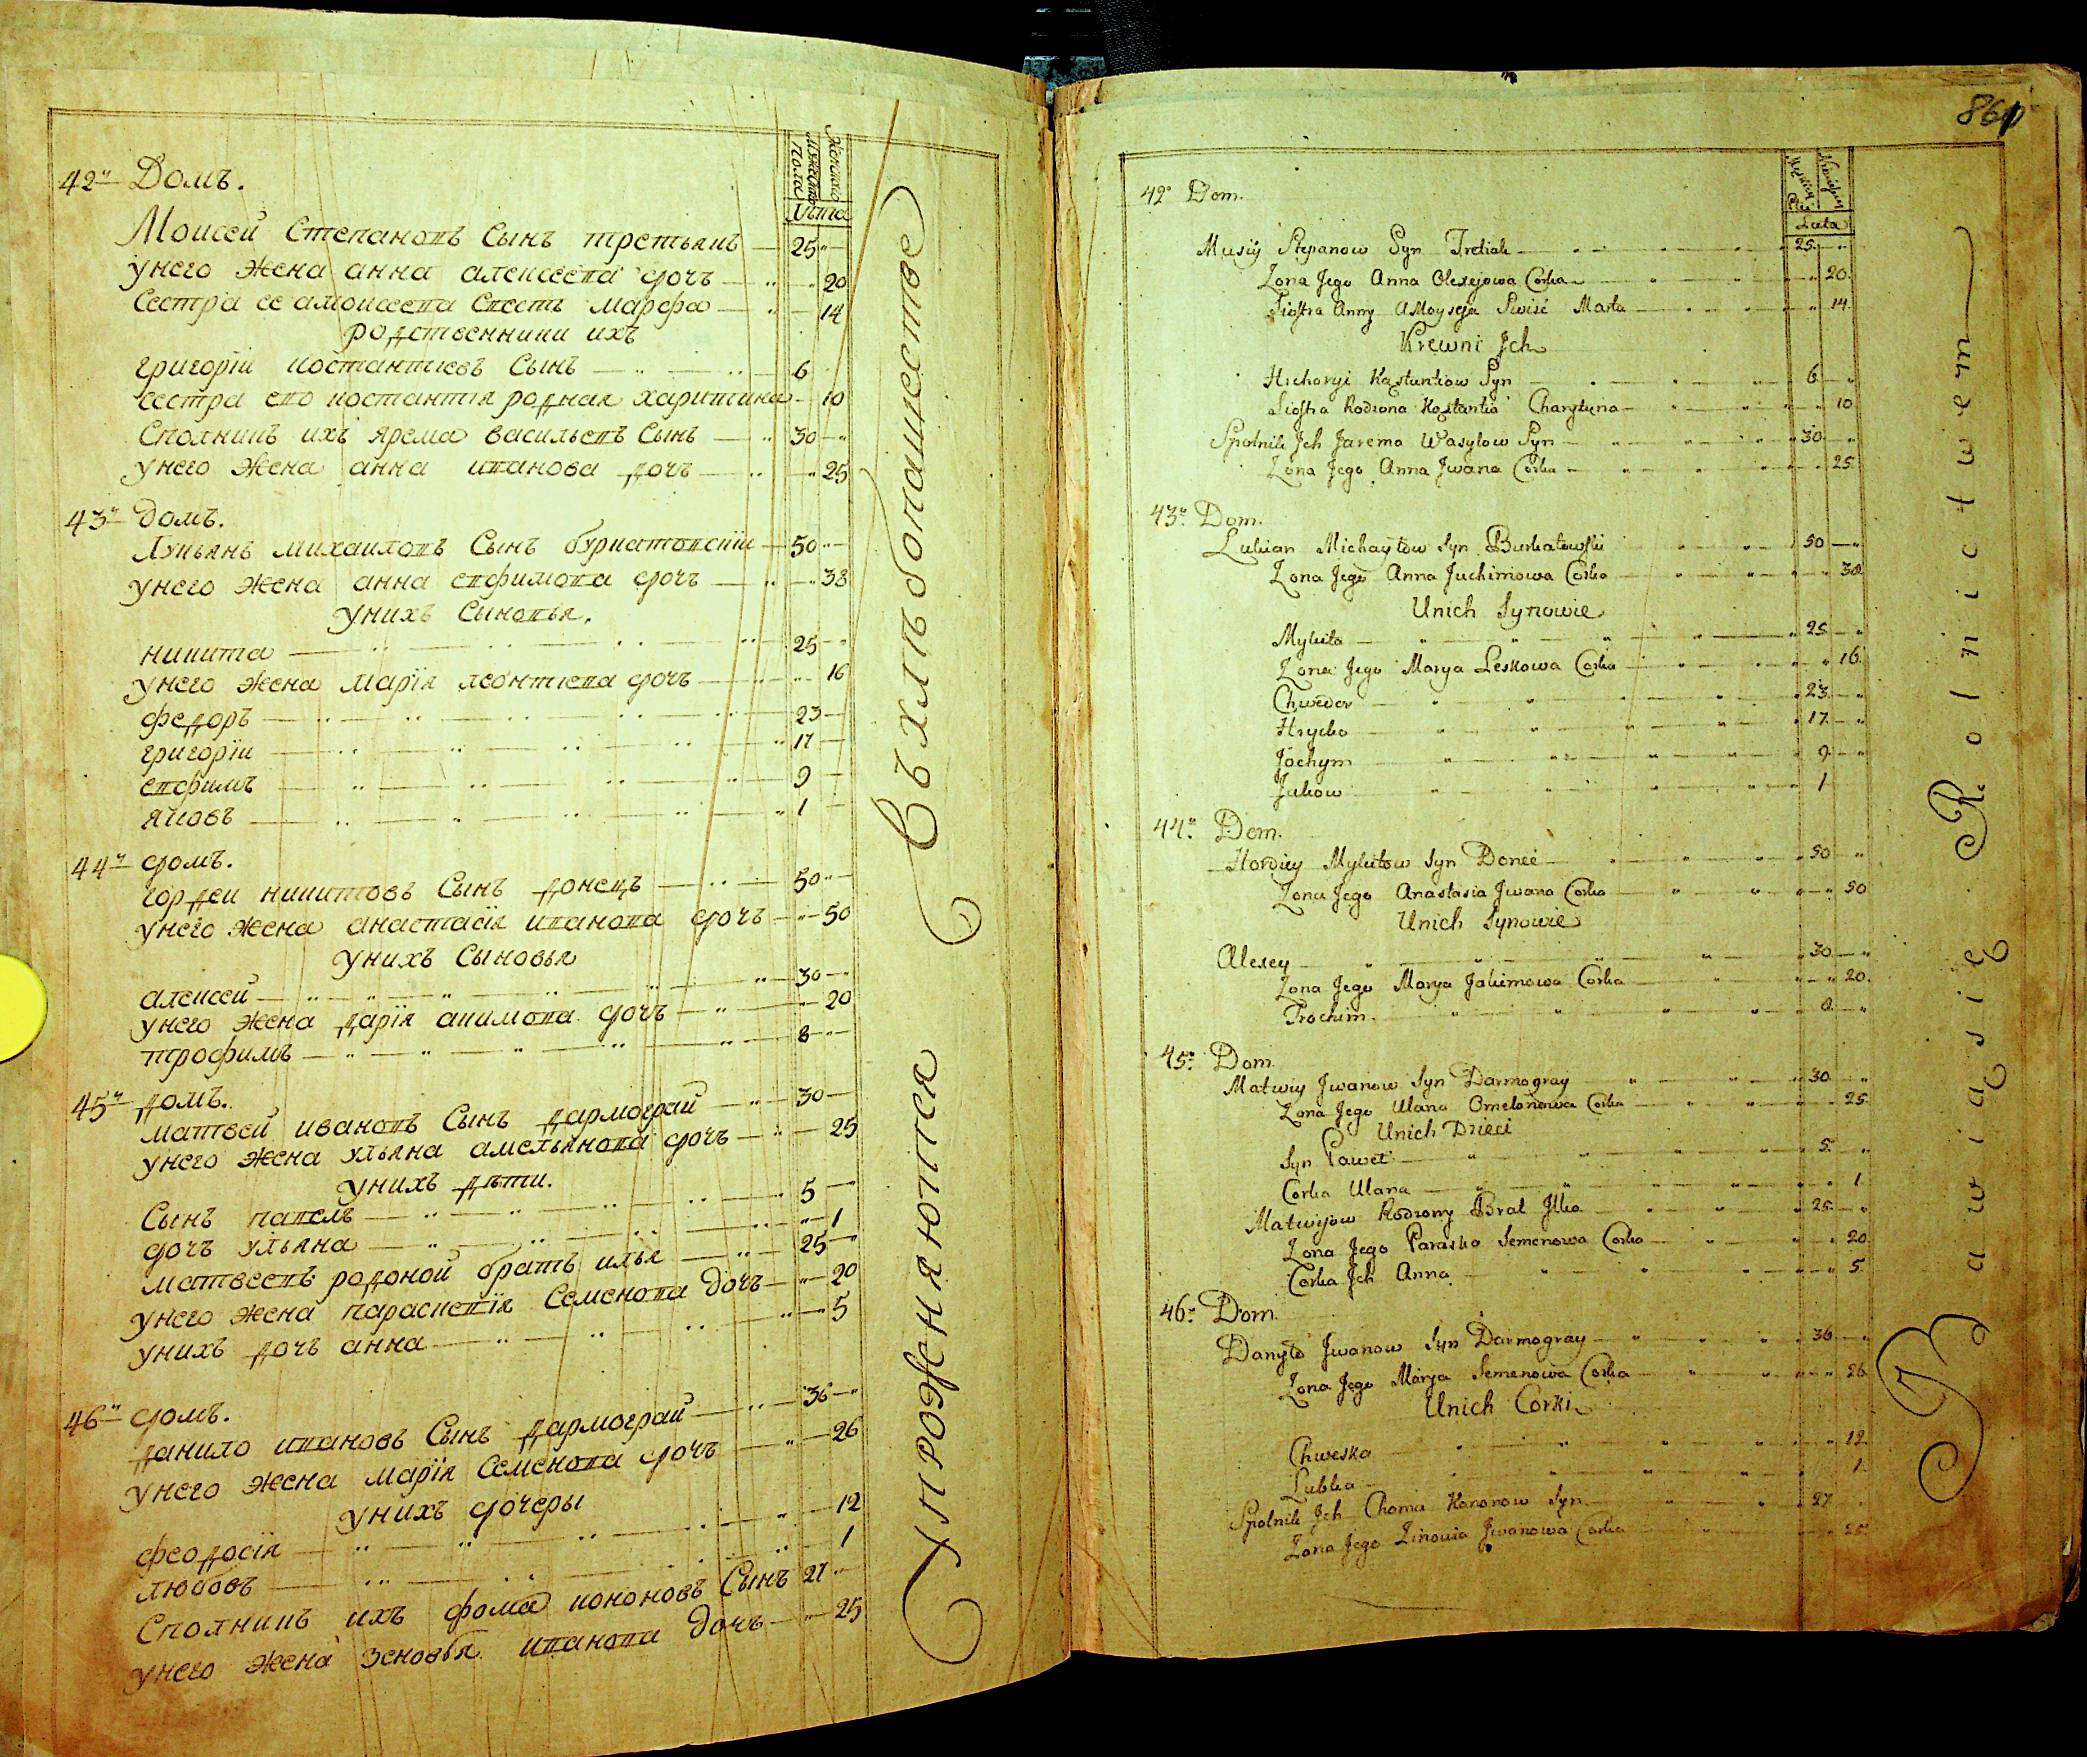 42й Домъ.
мужеска пола
женска
лѣта
Моисей Степановъ Сынъ третьякъ 25
унего жена анна алексеева дочъ 20
Сестра ее амоисеева свесть марфа 14
родственники ихъ
григорiи костантиевъ Сынъ 6
сестра его костантiя родная харитина 10
Сполникъ ихъ ярема васильевъ Сынъ 30
унего жена анна иванова дочъ 25
43й домъ.
Лукьянъ михаиловъ Сынъ буркатовскiи 50
унего жена анна евфимова дочъ 38
унихъ Сыновья.
никита 25
унего жена марiя леонтиева дочъ 16
федоръ 23
григорiи 17
евфимъ 9
яковъ 1
44й домъ.
гордеи никитовъ Сынъ донецъ 50
унего жена анастасiя иванова дочъ 50
унихъ Сыновья
алексей 30
унего жена дарiя акимова дочъ 20
трофимъ 8
45й домъ.
матвей ивановъ Сынъ дармограй 30
унего жена ульяна амельянова дочъ 25
унихъ дѣти.
Сынъ павелъ 5
дочъ ульяна 1
матвеевъ родной братъ илья 25
унего жена параскевiя Семенова дочъ 20
унихъ дочъ анна 5
46й домъ.
данило ивановъ Сынъ дармограй 36
унего жена марiя Семенова дочъ 26
унихъ дочеры
феодосiя 12
любовъ 1
Сполникъ ихъ фома кононовъ Сынъ 27
унего жена зеновья иванова дочъ 25
Упрожняются
Вхлѣбопашестве
861
42о Dom.
Lata
Musiy Stepanow Syn Tretiak 25
Zona Jego Anna Olexejowa Corka 20
Siostra Anny AMoyseja Swisć Marta 14
Krewni Jch
Hrehoryi Kostantiow Syn 6
Siostra Rodzona Kostantia Charytyna 10
Spolnik Jch Jarema Wasylow Syn 30
Zona Jego Anna Jwana Corka 25
43о Dom.
Lukian Michayłow Syn Burkatowski 50
Zona Jego Anna Juchimowa Corka 38
Unich Synowie
Mykita 25
Zona Jego Marya Leskowa Corka 16
Chwedor 23
Hrycko 17
Jochym 9
Jakow 1
44о Dom.
Hordiey Mykitow Syn Doneć 50
Zona Jego Anastasia Jwana Corka 50
Unich Synowie
Alexey 30
Zona Jego Marya Jakimowa Corka 20
Trochim 8
45о Dom
Matwiy Jwanow Syn Darmogray 30
Zona Jego Ulana Omelanowa Corka 25
Unich Dzieci
Syn Paweł 5
Corka Ulana 1
Matwijow Rodzony Brat Jlko 25
Zona Jego Paraska Semenowa Corka 20
Corka Jch Anna 5
46о Dom.
Danyło Jwanow Syn Darmogray 36
Zona Jego Marya Semenowa Corka 26
Unich Corki
Chweska 12
Lubka 1
Spolnik Jch Choma Kononow Syn 27
Zona Jego Zinowia Jwanowa Corka 25
Bawią się Rolnictwem